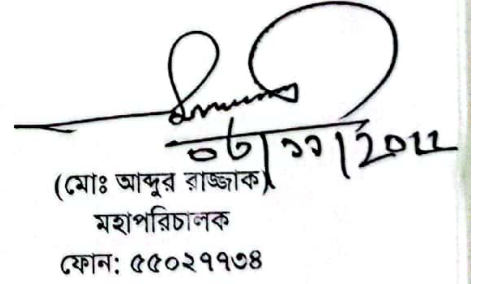 ০৮/১১/2022
(মোঃ আব্দুর রাজ্জাক)
মহাপরিচালক
ফোন: ৫৫০২৭৭৩৪